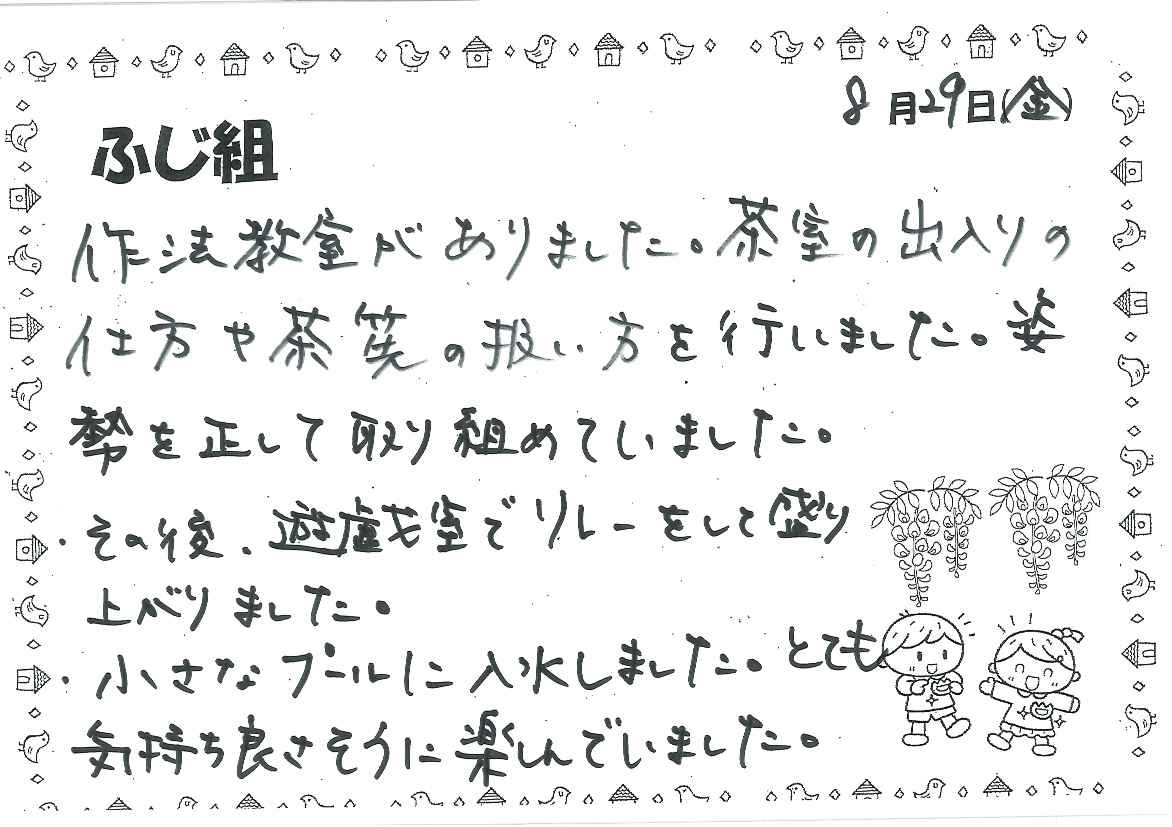 8月29日(金)
ふじ組
作法教室がありました。茶室の出入りの
仕方や茶筅の扱い方を行いました。姿
勢を正して取り組めていました。
・その後、遊戯室でリレーをして盛り
上がりました。
・小さなプールに入水しました。とても
気持ち良さそうに楽しんでいました。